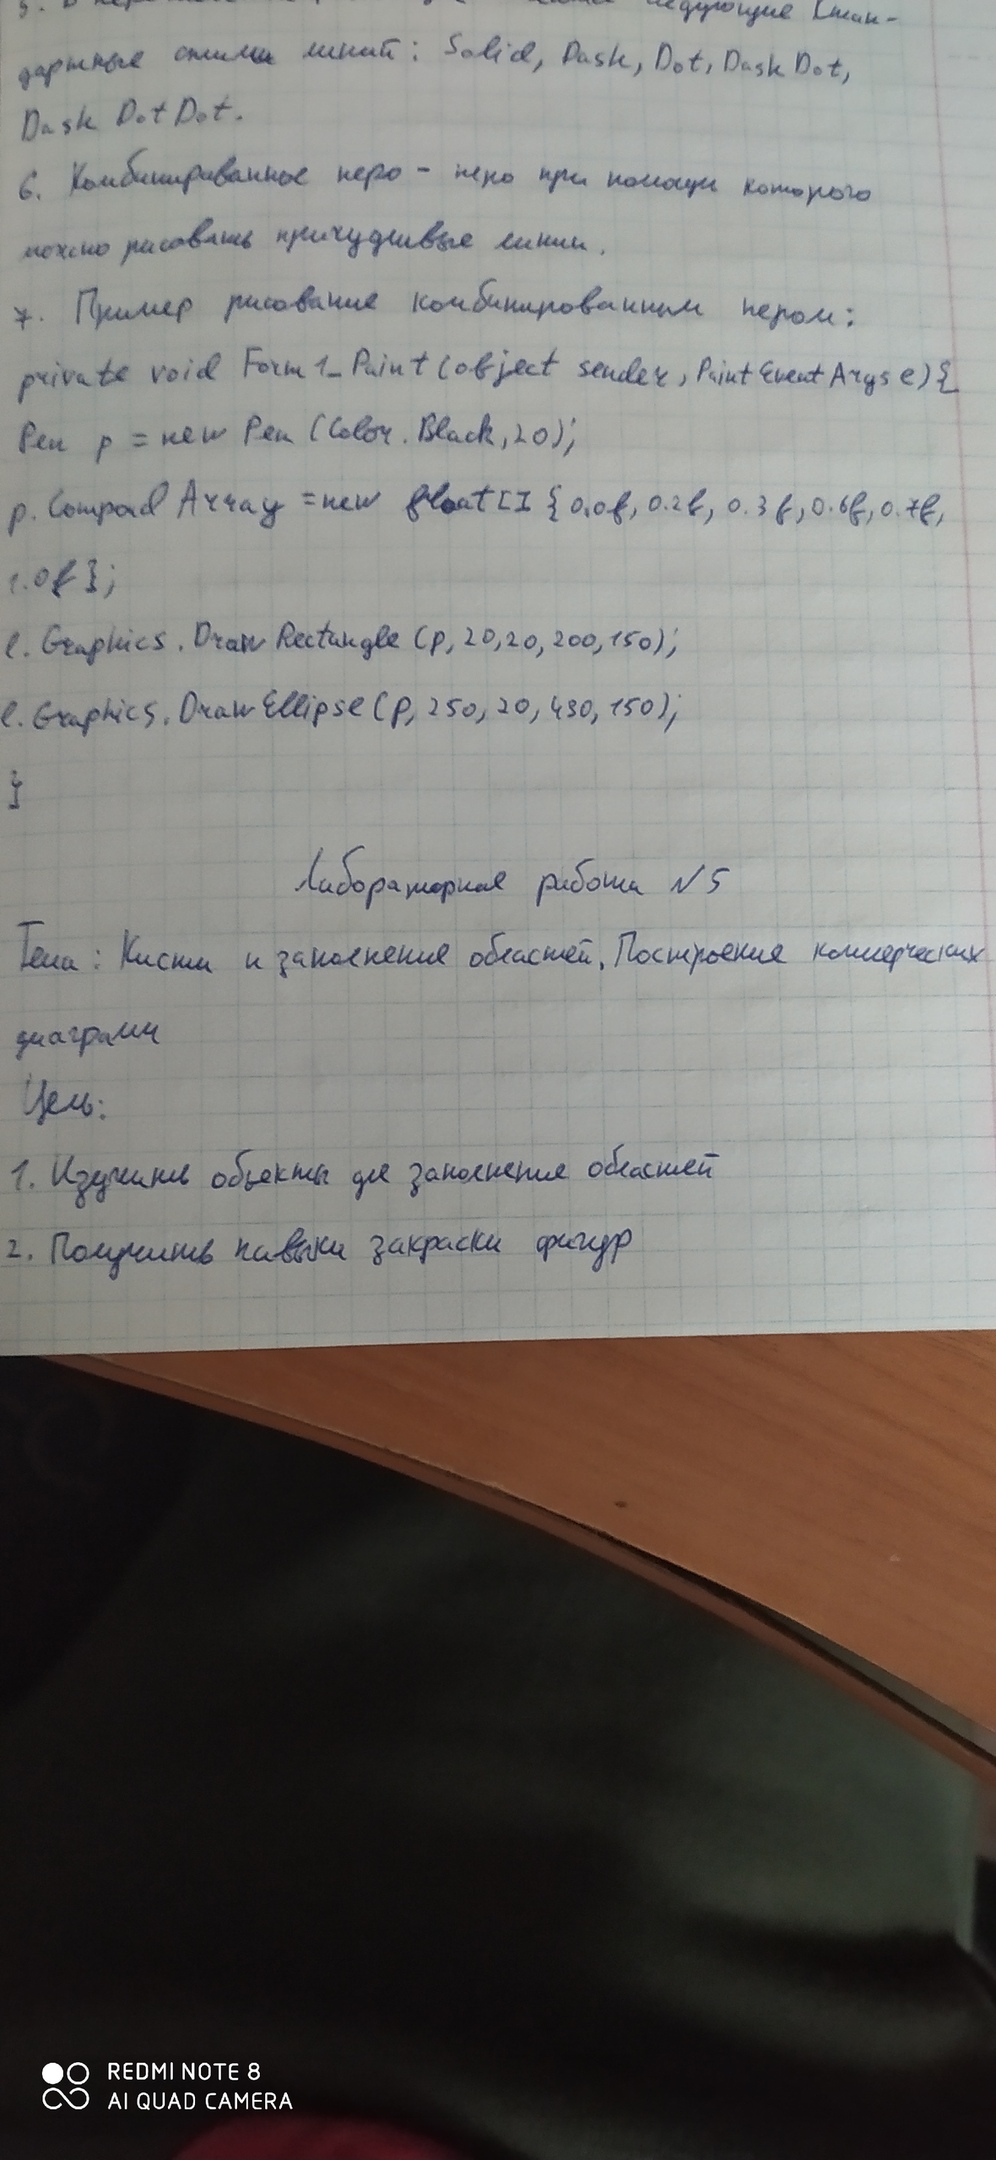 следующие стан-
дартные стили линий: Solid, Dash, Dot, Dash Dot,
Dash Dot Dot.
6. Комбинированное перо - перо при помощи которого
можно рисовать причудливые линии.
7. Пример рисование комбинированным пером:
private void Form1_Paint (object sender, PaintEventArgs e) {
Pen p = new Pen (Color.Black, 20);
p. Compoud Array = new float [] { 0.0f, 0.2f, 0.3f, 0.6f, 0.7f,
1.0f };
e. Graphics. Draw Rectangle (p, 20, 20, 200, 150);
e. Graphics. Draw Ellipse (p, 250, 20, 430, 150);
}
Лабораторная работа №5
Тема: Кисти и заполнение областей. Построение коммерческих
диаграмм
Цель:
1. Изучить объекты для заполнения областей
2. Получить навыки закраски фигур
REDMI NOTE 8
AI QUAD CAMERA